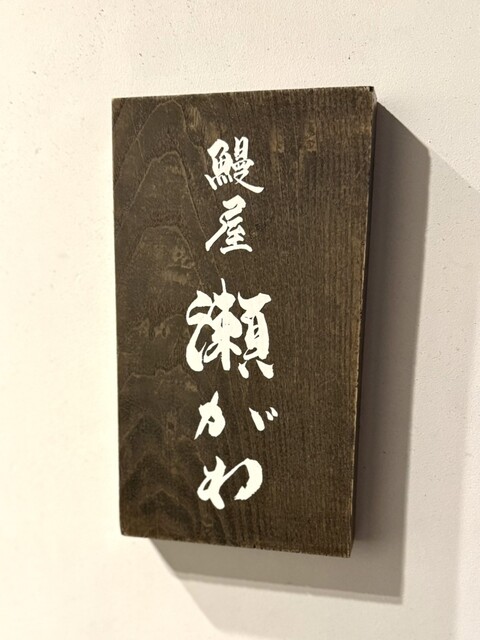 鰻屋瀬がわ